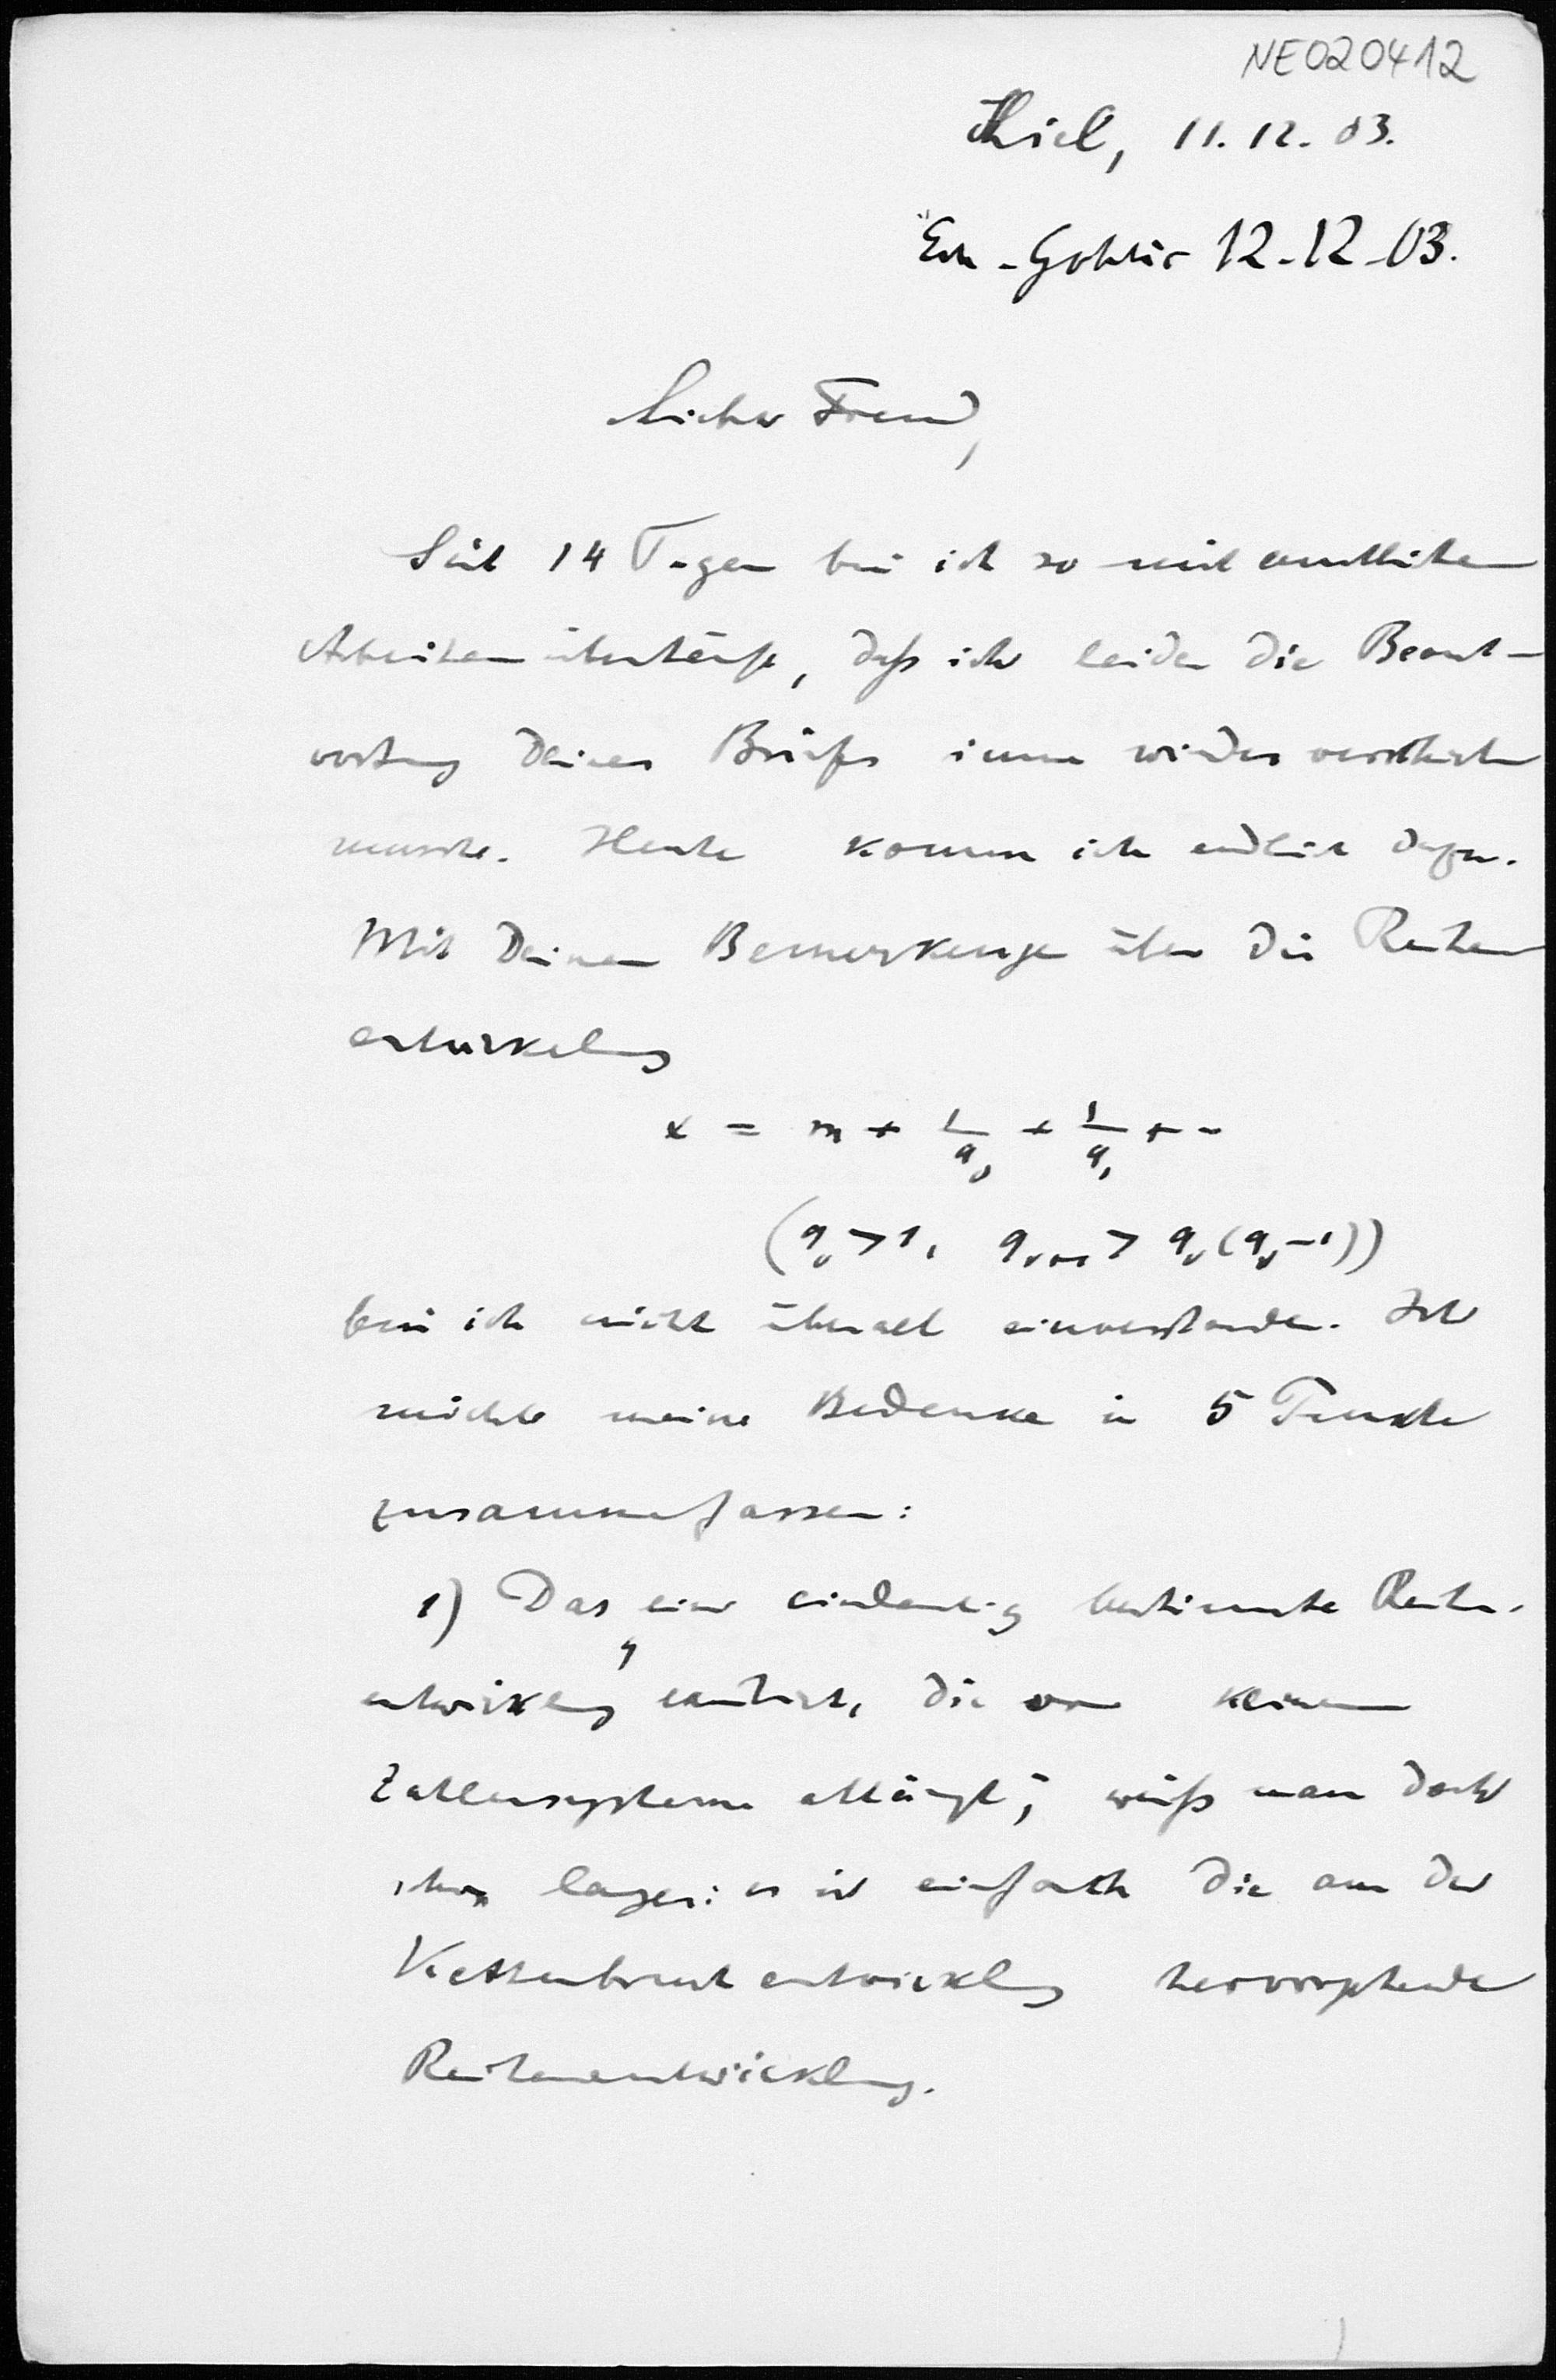 NE020412
Kiel, 11.12.03.
Gohlis 12-12-03.
Lieber Freund,
Seit 14 Tagen bin ich so mit amtlichen
Arbeiten überhäuft, daß ich leider die Beant-
wortung Deines Briefes immer wieder verschieben
musste. Heute komme ich endlich dazu.
Mit Deinen Bemerkungen über die Reihen
entwickelung
x = m + 1/q₀ + 1/q₁ + --
(q₀ > 1, qᵥ₊₁ > qᵥ(qᵥ-1))
bin ich nicht überall einverstanden. Ich
möchte meine Bedenken in 5 Punkte
zusammenfassen:
1) Dass „eine eindeutig bestimmte Reihen-
entwicklung existirt, die von keinem
Zahlensysteme abhängt", weiß man doch
schon länger: es ist einfach die aus der
Kettenbruchentwicklung hervorgehende
Reihenentwicklung.